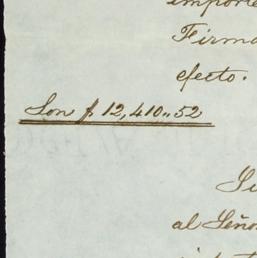 importe
Firma
efecto.
Son $ 12,410,,52
al Señor